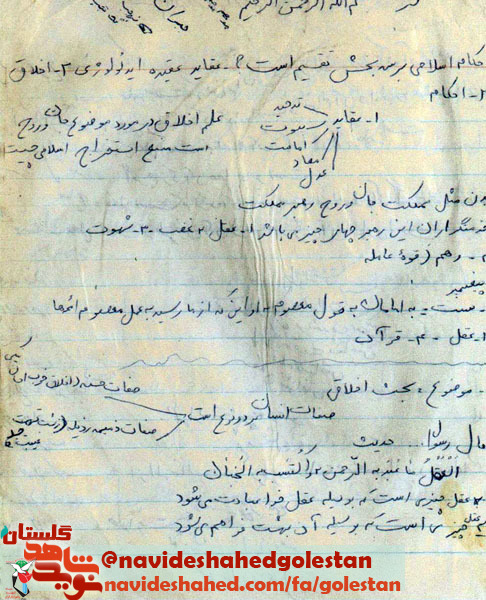 بسم الله الرحمن الرحیم
احکام اسلامی بر سه بخش تقسیم است؟ ۱- عقاید عقیده ایدئولوژی ۲- اخلاق
۳- احکام
۱- عقاید
توحید
نبوت
امامت
معاد
عدل
علم اخلاق در مورد موضوع جان و روح
است منبع استخراج اسلامی چیست
بدن مثل مملکت جان و روح رهبر مملکت
خدمتگزاران این رهبر چهار چیز می باشد ۱- عقل ۲- غضب ۳- شهوت
۴- وهم (قوۀ عامله
پیغمبر
سنت = به امامان به قول معصوم
۱- عقل ۴- قرآن
موضوع = بحث اخلاق
صفات انسان بر دو نوع است
صفات حسنه (اخلاق خوب
صفات ذمیمه رذیله (زشت
غیبت
قال رسول الله حدیث
اَلْعَقْلُ ما عُبِدَ بِهِ الرَّحمن وَ اکْتُسِبَ بِهِ الْجِنان
عقل چیزی است که بوسیله عقل خدا عبادت می شود
عقل چیزی است که بوسیله آن بهشت فراهم می شود
نوید شاهد گلستان
@navideshahedgolestan
navideshahed.com/fa/golestan